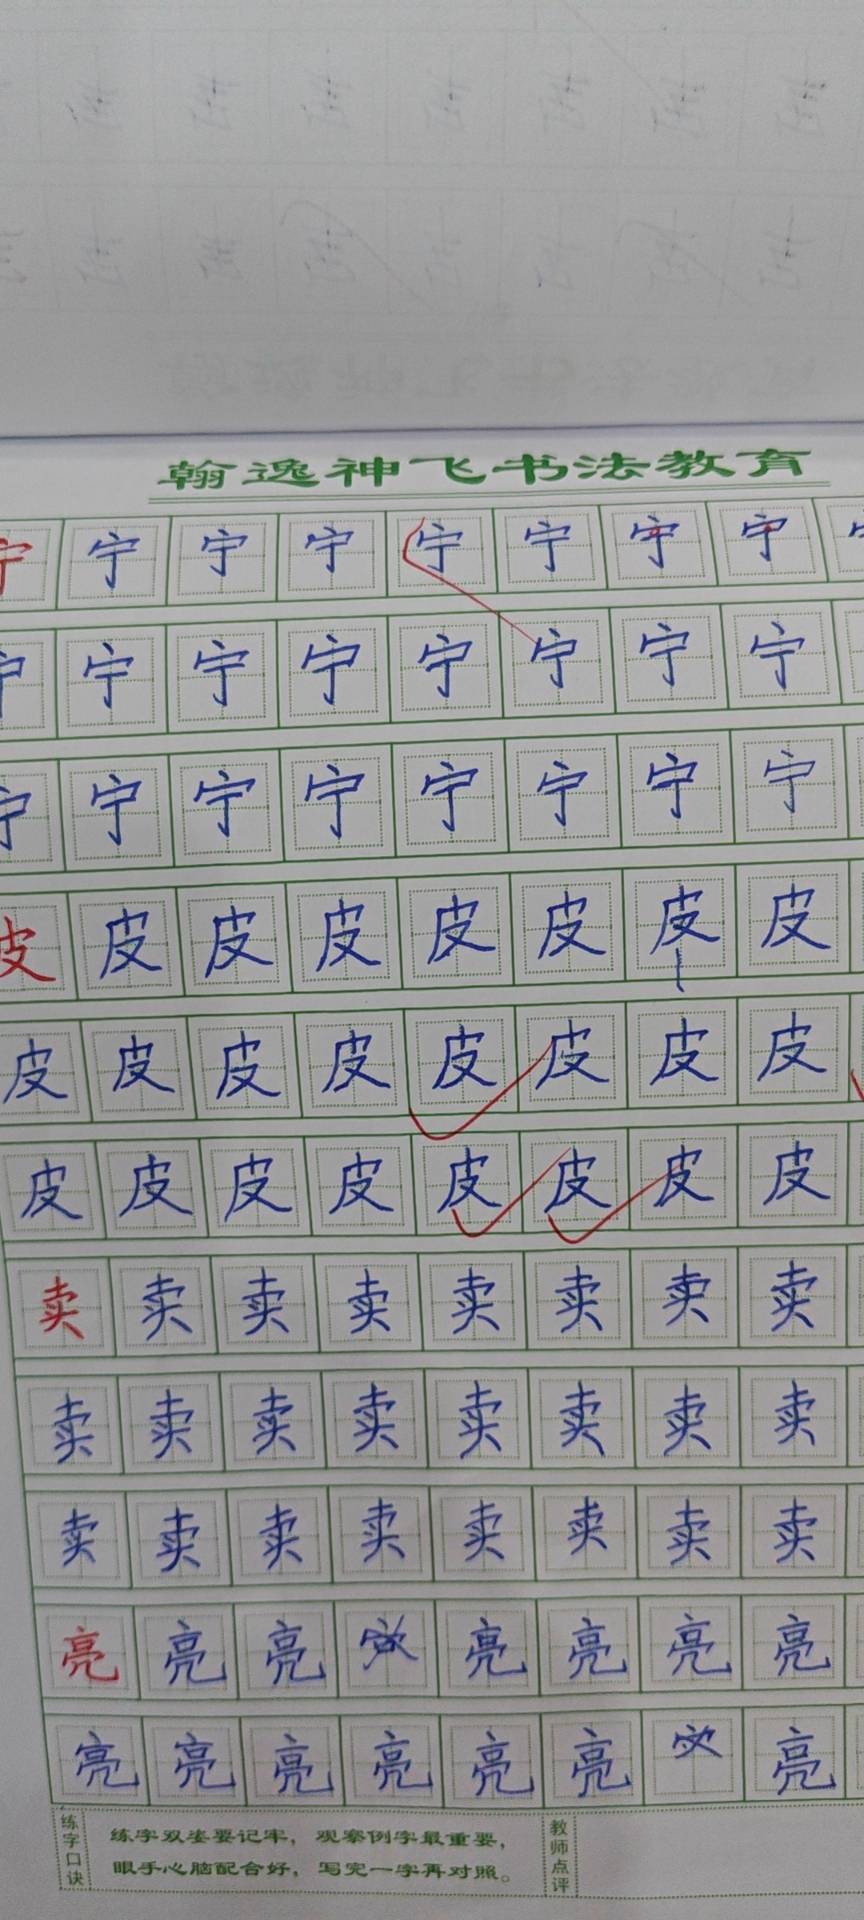 翰逸神飞书法教育
宁 宁 宁 宁 宁 宁 宁 宁
宁 宁 宁 宁 宁 宁 宁 宁
宁 宁 宁 宁 宁 宁 宁 宁
皮 皮 皮 皮 皮 皮 皮 皮
皮 皮 皮 皮 皮 皮 皮 皮
皮 皮 皮 皮 皮 皮 皮 皮
卖 卖 卖 卖 卖 卖 卖 卖
卖 卖 卖 卖 卖 卖 卖 卖
卖 卖 卖 卖 卖 卖 卖 卖
亮 亮 亮 亮 亮 亮 亮
亮 亮 亮 亮 亮 亮 亮
练字口诀
练字双姿要记牢，观察例字最重要，
眼手心脑配合好，写完一字再对照。
教师点评